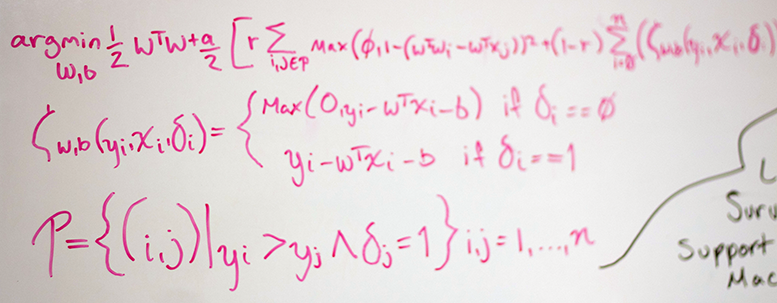 argmin w,b 1/2 wᵀw + a/2 [r Σ i,j∈P Max(∅,1-(wᵀwᵢ-wᵀxⱼ))² + (1-r) Σ n i=∅ (ζ w,b (yᵢ,xᵢ,δᵢ)
ζ w,b (yᵢ,xᵢ,δᵢ) = { Max(0,yᵢ-wᵀxᵢ-b) if δᵢ == ∅
yᵢ-wᵀxᵢ-b if δᵢ == 1
P = {(i,j)|yᵢ > yⱼ ∧ δⱼ = 1} i,j = 1,...,n
L
Surv
Support
Mac